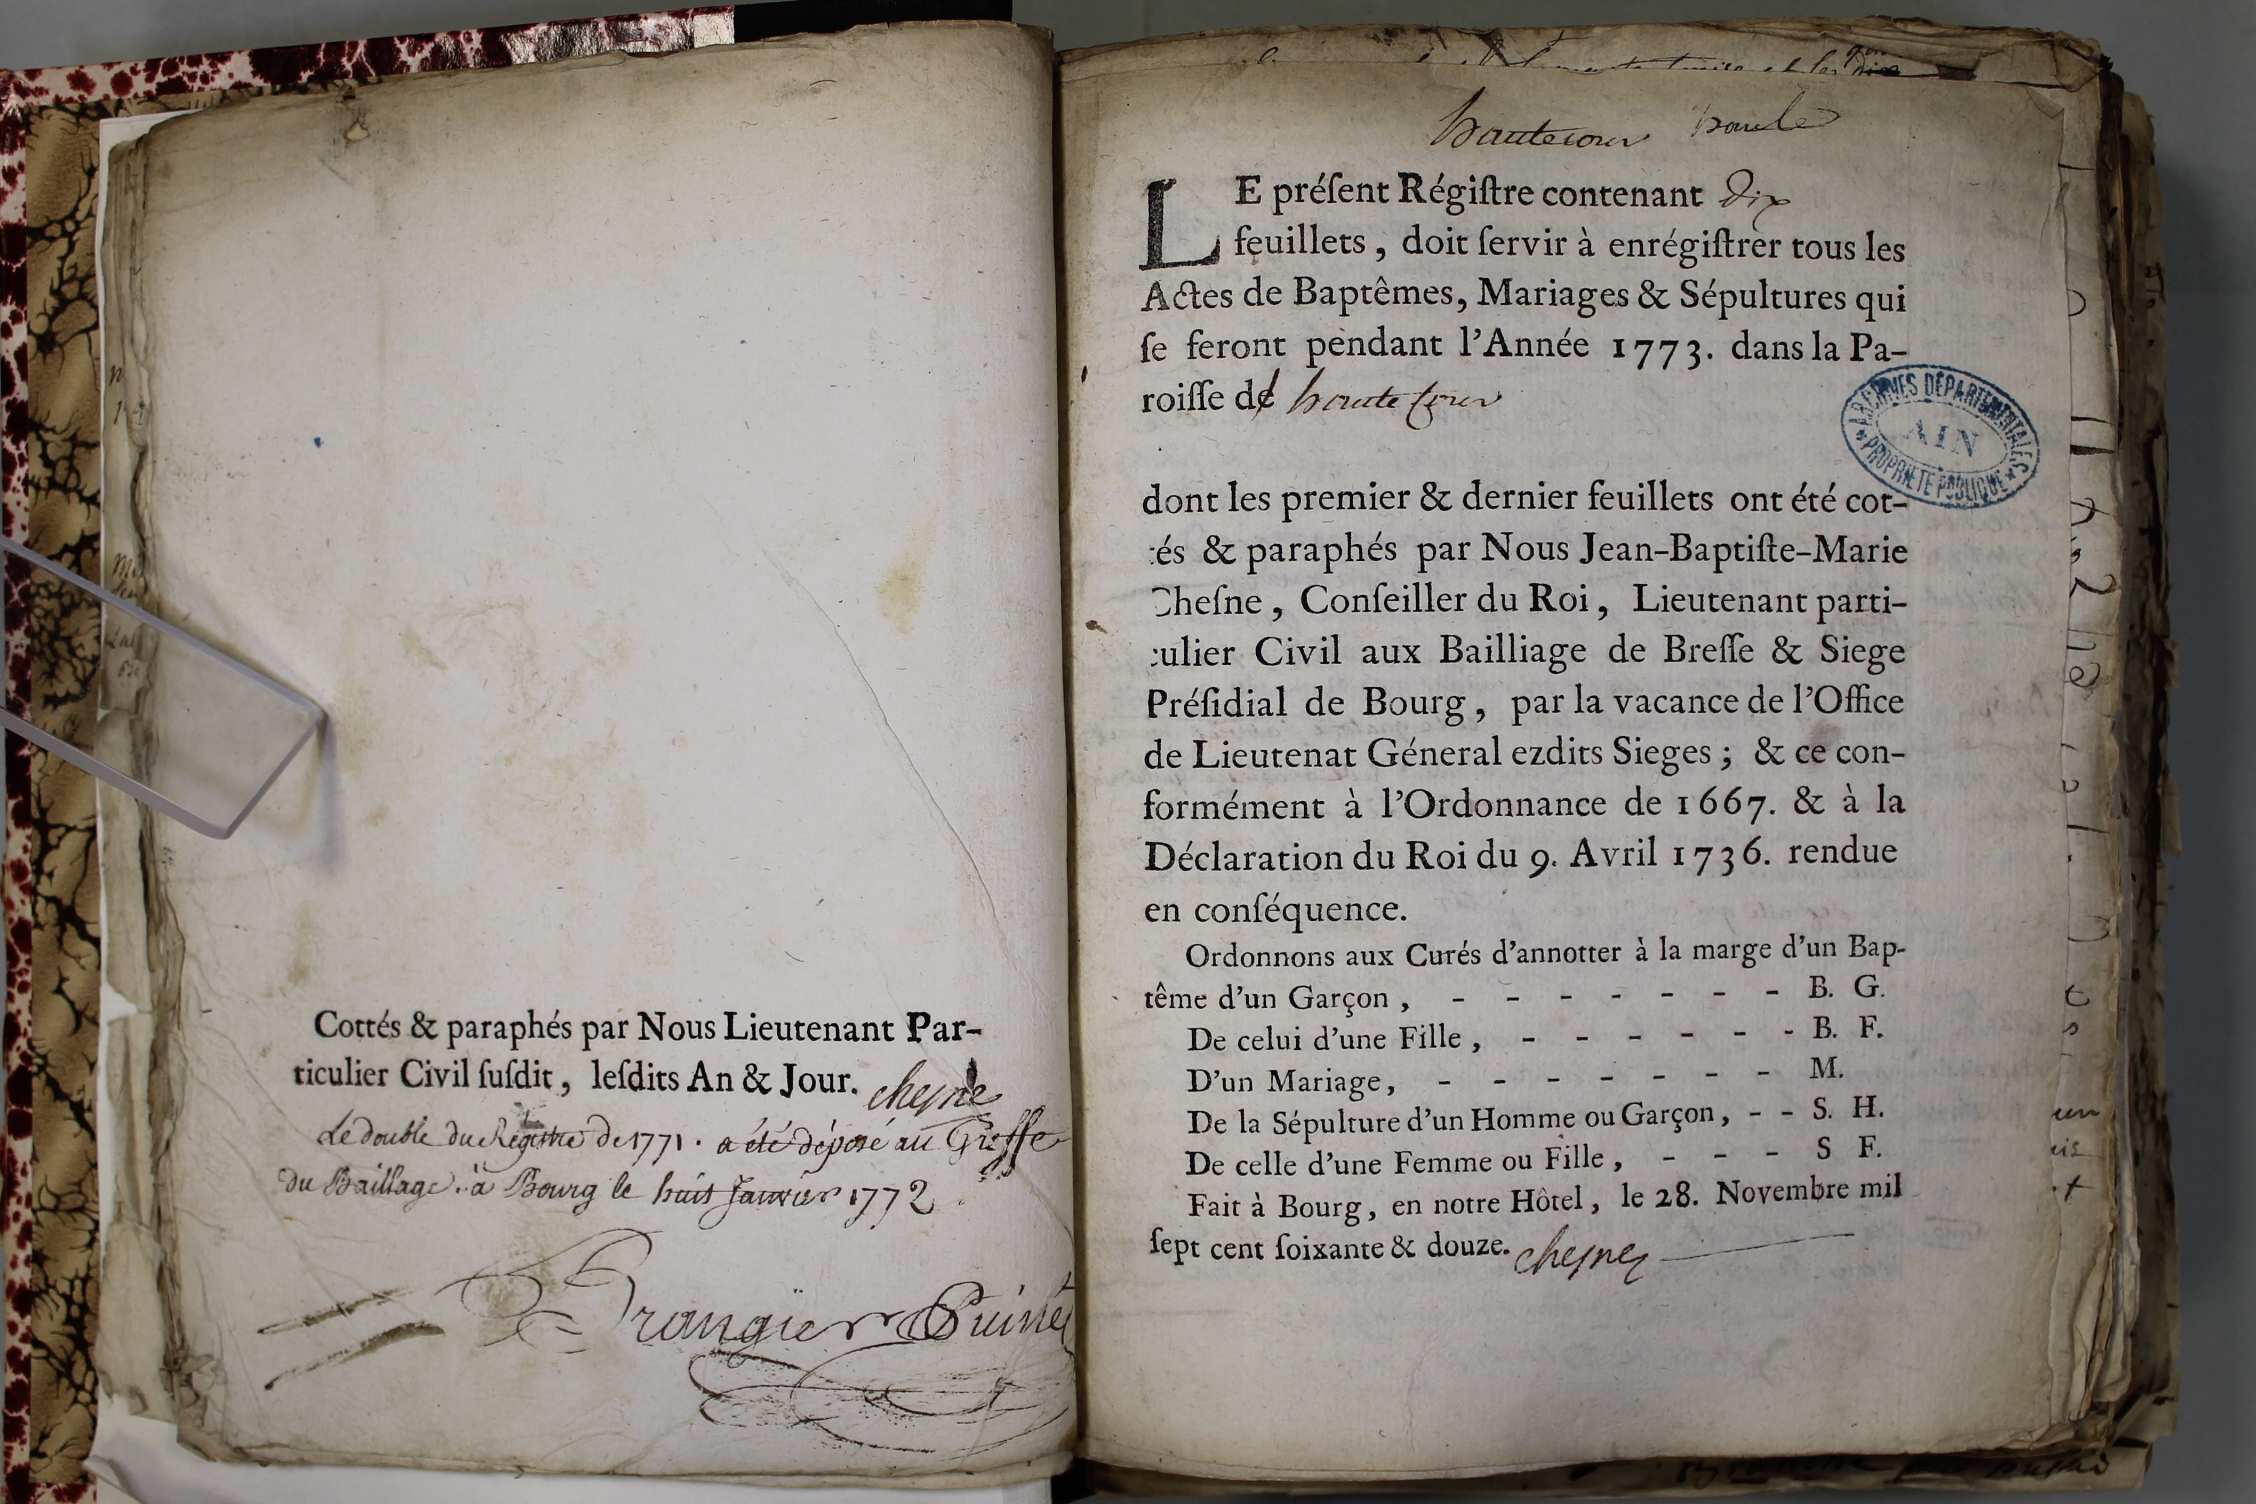 Cottés & paraphés par Nous Lieutenant Par-
ticulier Civil ſuſdit, leſdits An & Jour. cheſne
Le double du Régistre de 1771. a été déposé au Greffe
du Bailliage à Bourg le huit Janvier 1772
hautecour
LE préſent Régiſtre contenant Dix
feuillets, doit ſervir à enrégiſtrer tous les
Actes de Baptêmes, Mariages & Sépultures qui
ſe feront pendant l'Année 1773. dans la Pa-
roiſſe de hautecour
ARCHIVES DÉPARTEMENTALES
AIN
PROPRIÉTÉ PUBLIQUE
dont les premier & dernier feuillets ont été cot-
tés & paraphés par Nous Jean-Baptiſte-Marie
Cheſne, Conſeiller du Roi, Lieutenant parti-
culier Civil aux Bailliage de Breſſe & Siege
Préſidial de Bourg, par la vacance de l'Office
de Lieutenat Géneral ezdits Sieges; & ce con-
formément à l'Ordonnance de 1667. & à la
Déclaration du Roi du 9. Avril 1736. rendue
en conſéquence.
Ordonnons aux Curés d'annotter à la marge d'un Bap-
tême d'un Garçon, - - - - - - - B. G.
De celui d'une Fille, - - - - - - B. F.
D'un Mariage, - - - - - - - M.
De la Sépulture d'un Homme ou Garçon, - - S. H.
De celle d'une Femme ou Fille, - - - S F.
Fait à Bourg, en notre Hôtel, le 28. Novembre mil
ſept cent ſoixante & douze. cheſne